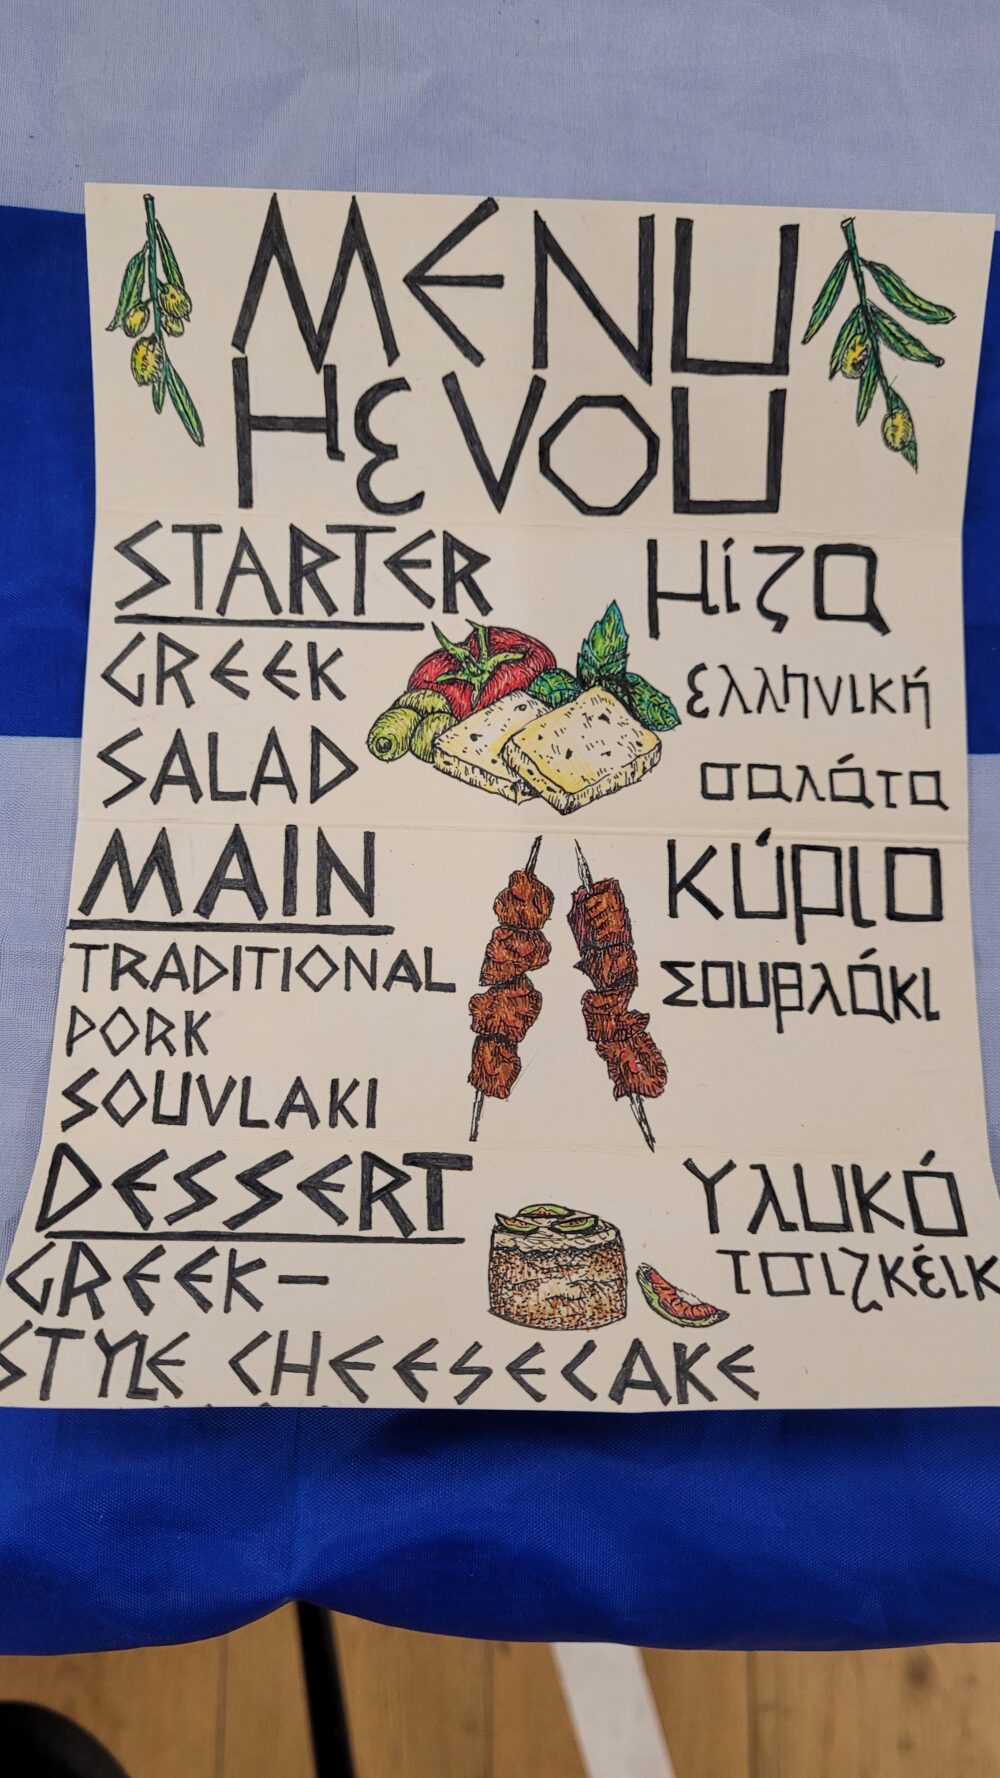 MENU
μενου
STARTER
μίζα
GREEK
ελληνική
SALAD
σαλάτα
MAIN
κύριο
TRADITIONAL
σουβλάκι
PORK
SOUVLAKI
DESSERT
Υλυκό
GREEK-
τσιζκέικ
STYLE CHEESECAKE